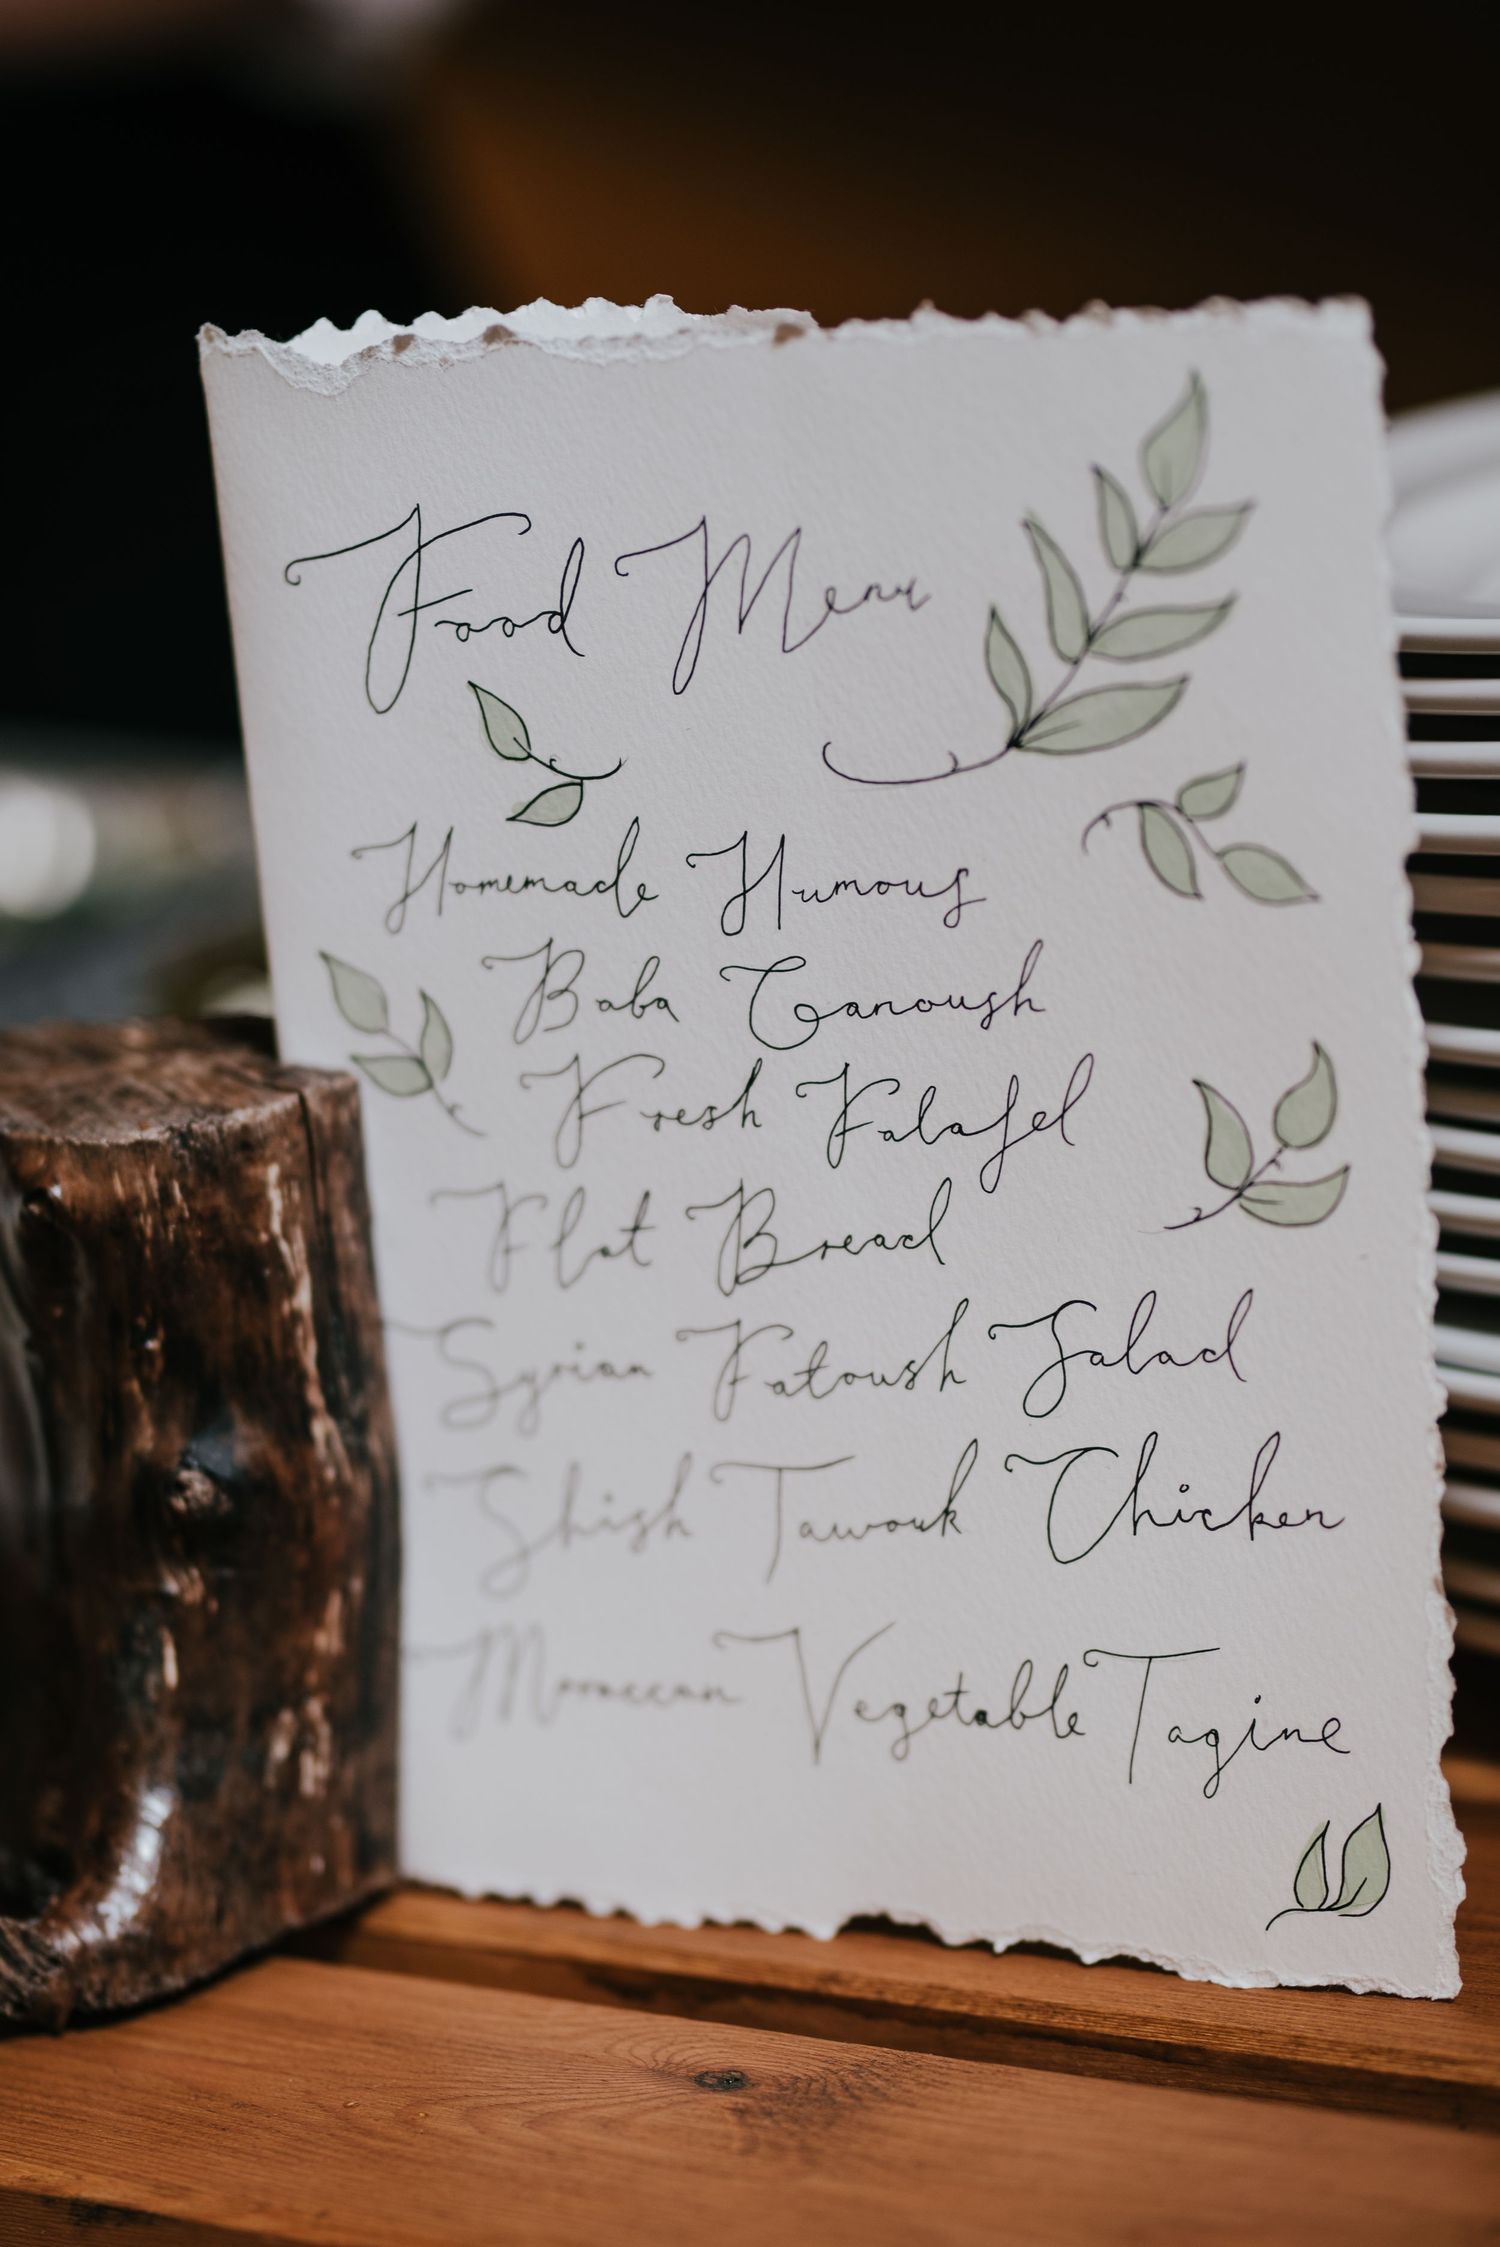 Food Menu
Homemade Humous
Baba Ganoush
Fresh Falafel
Flat Bread
Syrian Fatoush Salad
Shish Tawouk Chicken
Moroccan Vegetable Tagine